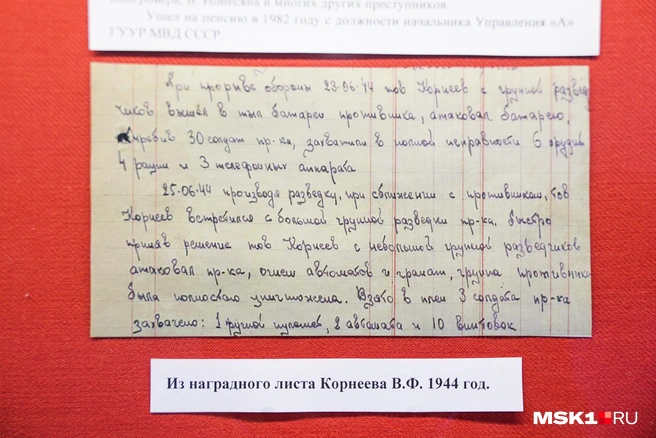 Вентровера, В. Ионесяна и многих других преступников.
Ушел на пенсию в 1982 году с должности начальника Управления «А»
ГУУР МВД СССР.
При прорыве обороны 23.06.44 тов Корнеев с группой развед
чиков вышел в тыл батареи противника, атаковал батарею,
истребив 30 солдат пр-ка, захватили в полной исправности 6 орудий
4 рации и 3 телефонных аппарата
25.06.44 производя разведку, при сближении с противником, тов
Корнеев встретился с большой группой разведки пр-ка, быстро
приняв решение тов Корнеев с небольшой группой разведчиков
атаковал пр-ка, огнем автоматов и гранат, группа противника
была полностью уничтожена. Взято в плен 3 солдата пр-ка
захвачено: 1 ручной пулемет, 2 автомата и 10 винтовок
Из наградного листа Корнеева В.Ф. 1944 год.
MSK1.RU